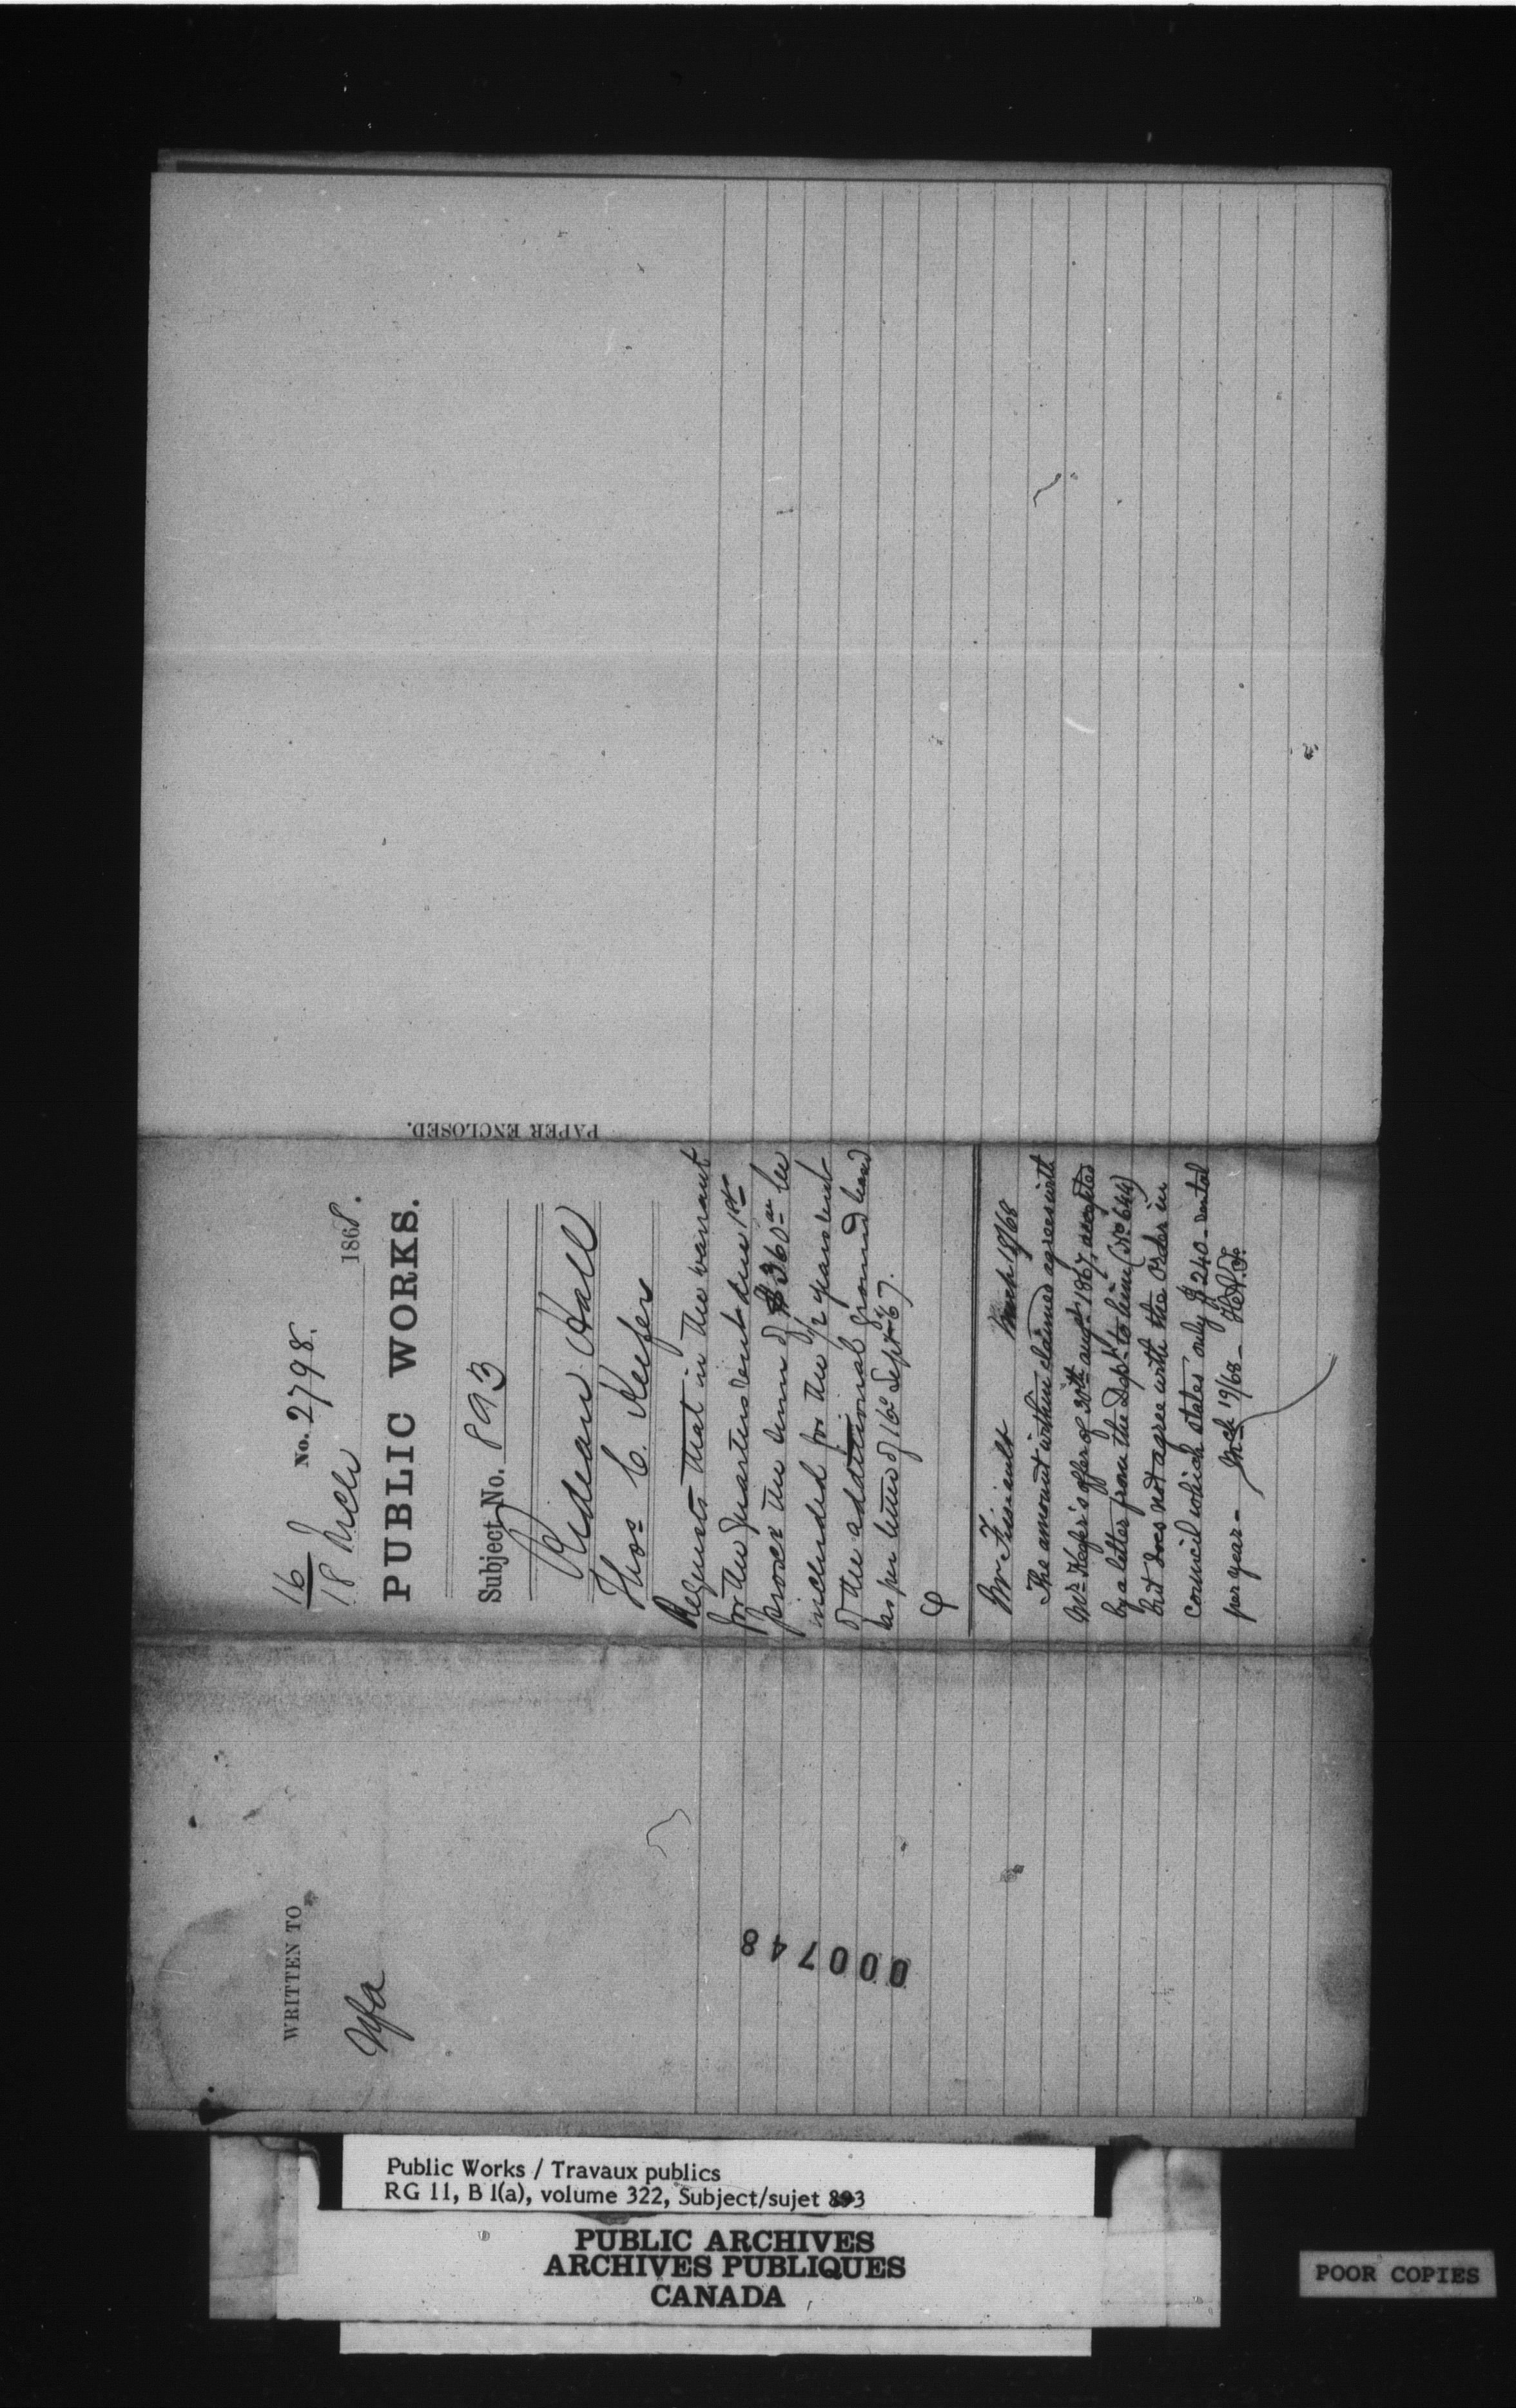 16/18 Mch 1868.
No. 2798.
PUBLIC WORKS.
Subject No. 893
Rideau Hall
Thos C. Keefer
Requests that in the warrant
for the quarters rent due 1st
prox: the sum of $360 be
included for the 1/2 years rent
of the additional ground leased
as per letter of 16 Sept 67.
Mr Trudeau March 18/68
The amount within claimed agrees with
Mr Keefer's offer of 30th augst 1867, accepted
by a letter from the Dept to him (No 644)
but does not agree with the Order in
Council which states only $240 - rental
per year - Mch 19/68 -
PAPER ENCLOSED.
WRITTEN TO
000748
Public Works / Travaux publics
RG 11, B 1(a), volume 322, Subject/sujet 893
PUBLIC ARCHIVES
ARCHIVES PUBLIQUES
CANADA
POOR COPIES